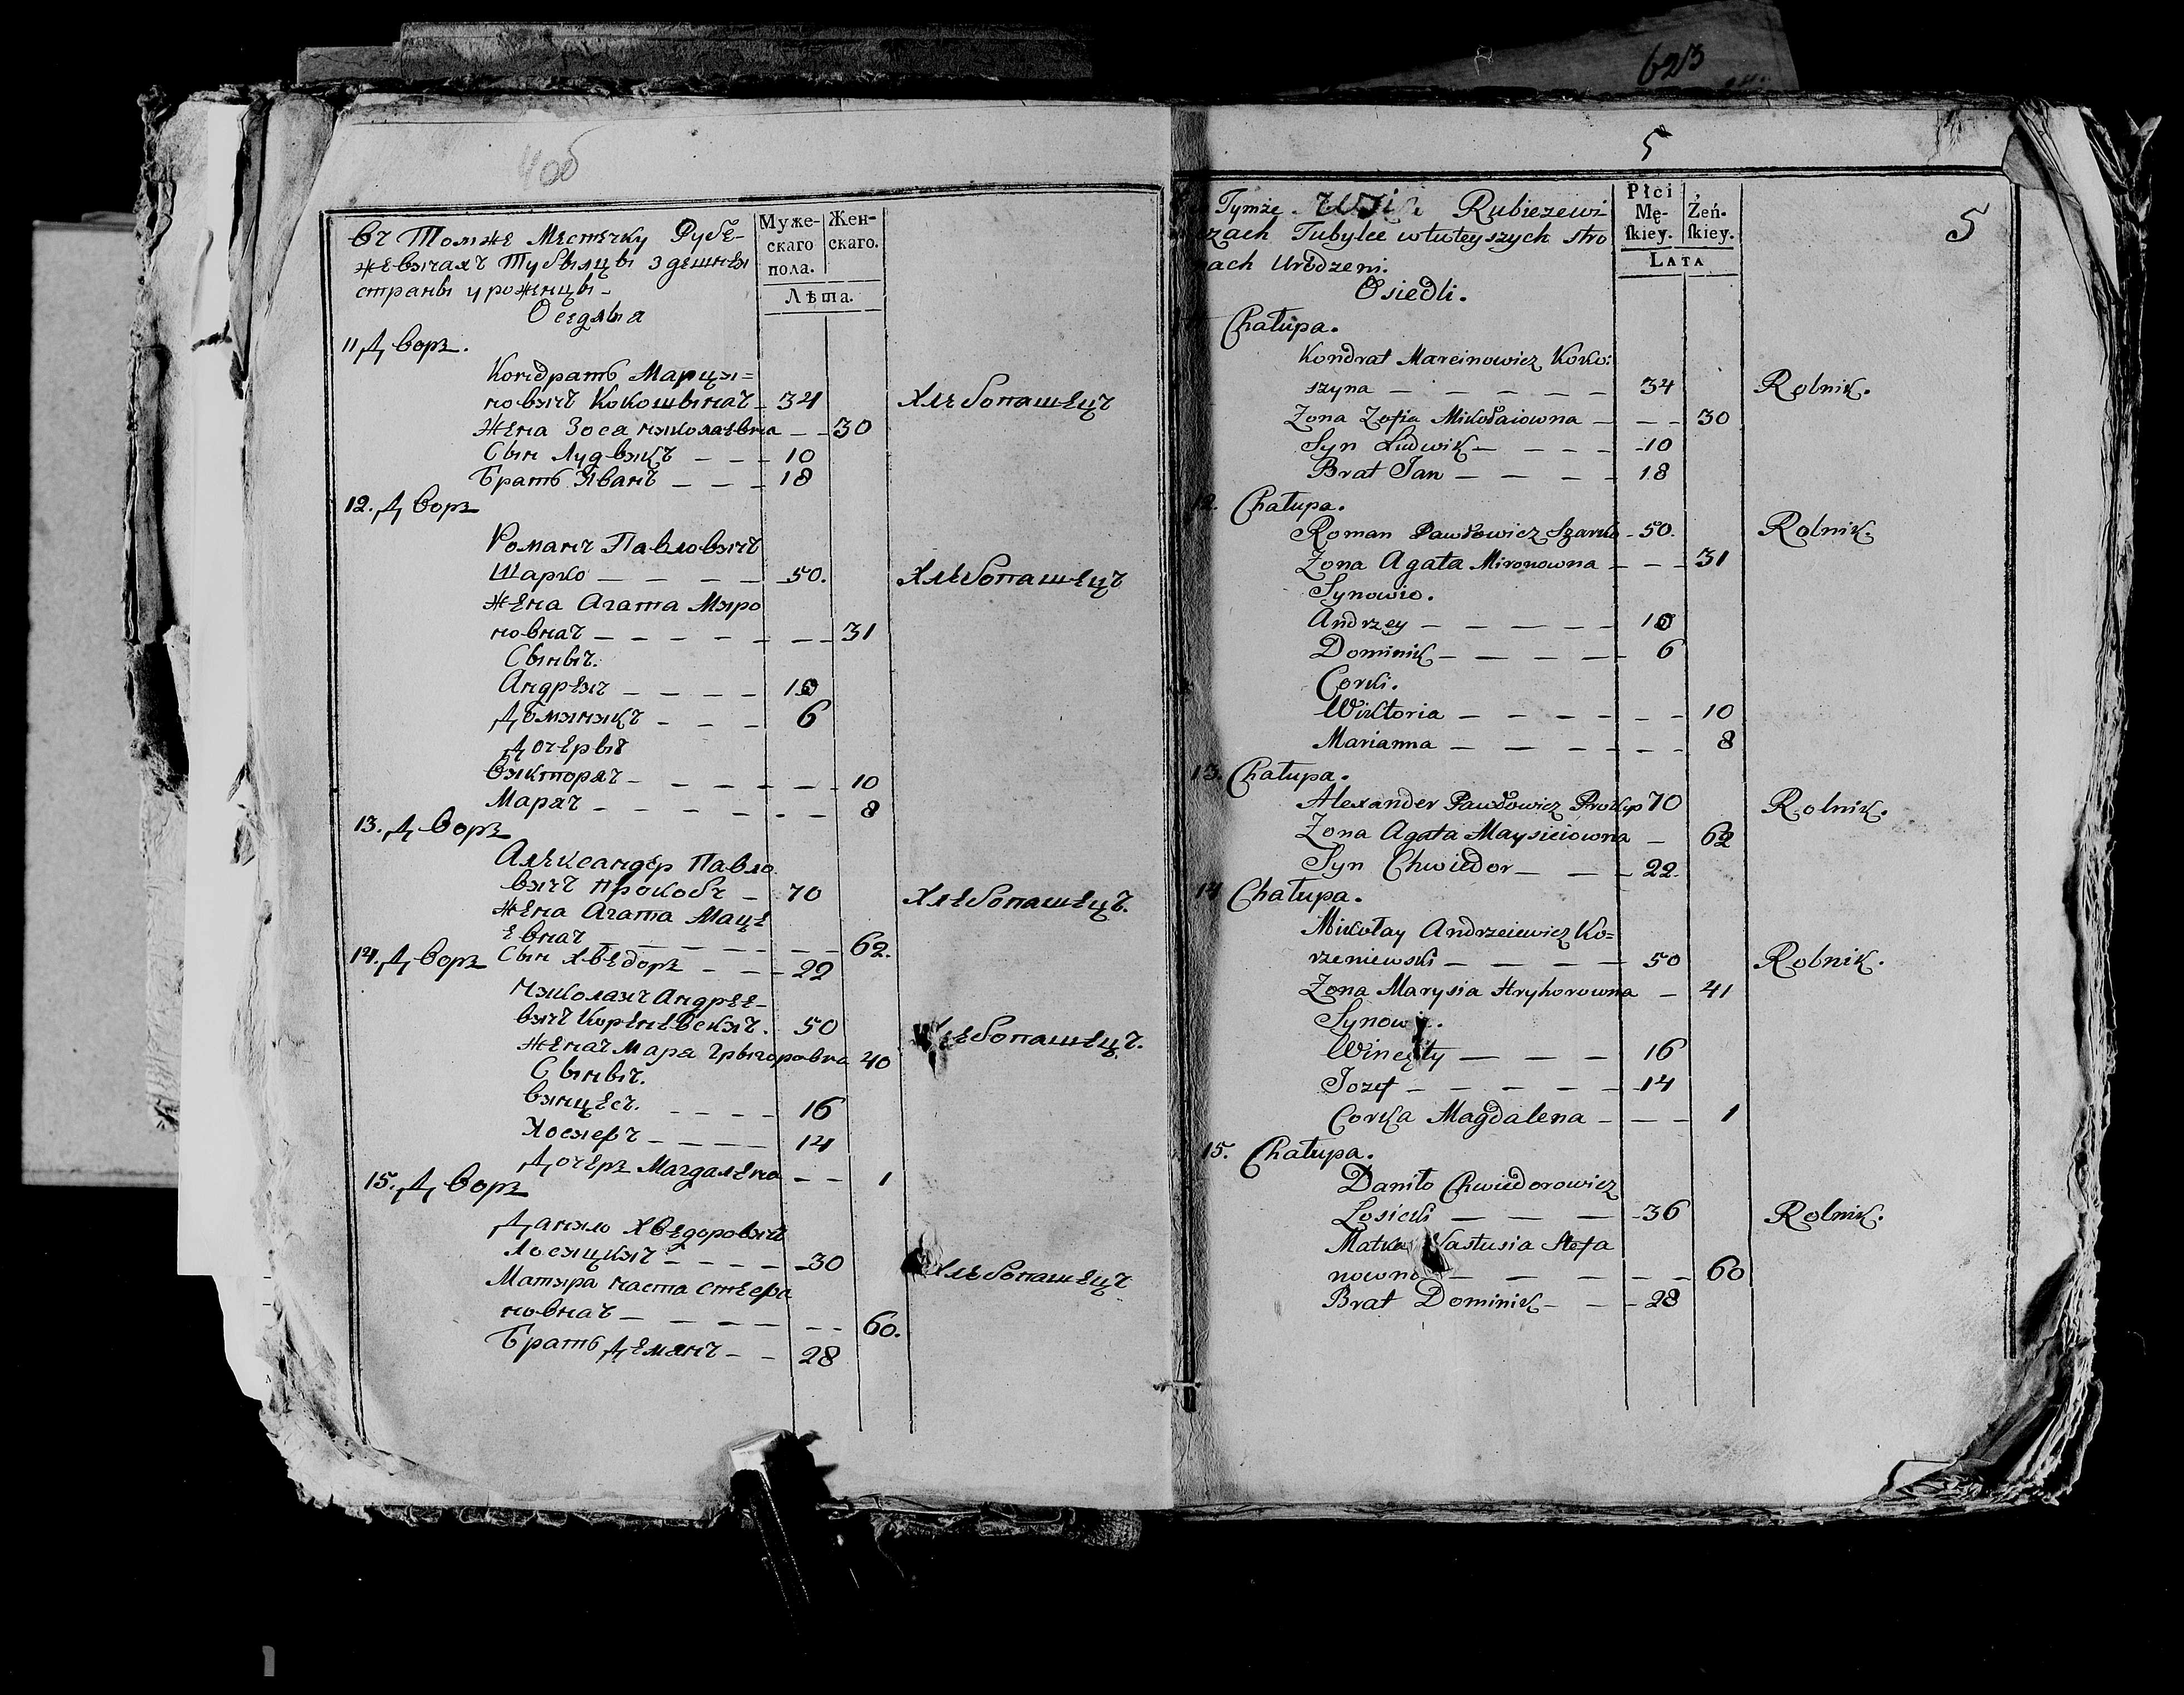 623
4 об
въ томже местечку Рубе-
жевичахъ Тубылцы здешнеи
страны уроженцы -
Оседлыя
Муже-
скаго
пола.
Жен-
скаго.
Лѣта.
11 Дворъ.
Кондратъ Марци=
новичъ Кокошынаъ - 34 Хлебопашецъ
Жена Зося николаевна - - 30
Сынъ Лудвикъ - - - 10
Братъ Иванъ - - - 18
12. Дворъ
Романъ Павловичъ
Шарко - - - - 50. Хлебопашецъ
жена Агата Миро
новнаъ - - - - - - - 31
Сыныъ.
Андреиъ - - - - 10
Доминикъ - - - 6
Дочеры
Викторяъ - - - - - - 10
Маряъ - - - - - - 8
13. Дворъ
Александеръ Павло
вичъ Прокобъ - 70 Хлебопашецъ.
жена Агата Маце
евнаъ - - - - - - 62.
Сын Хведоръ - - - 22
14. Дворъ
Николаиъ Андрее-
вичъ Кореневскиъ. 50 Хлебопашецъ.
женаъ Маря Грыгоровна 40
Сыныъ.
Винцесъ. - - - - 16
Иосиефъ - - - - 14
Дочеръ Магдалена - - 1
15. Дворъ
Данило Хведоровичъ
Лосицкиъ - - - - - 30 Хлебопашецъ
Матира наста стефа
новнаъ - - - - - - - 60.
Братъ Деманъ - - 28
5
5
Tymże Rubieżewi-
zach Tubylce w tuteyszych stro
nach Urodzeni.
Osiedli.
Płci
Mę-
skiey.
Żeń-
skiey.
LATA
Chałupa.
Kondrat Marcinowicz Koko:
szyna - - - - - - 34 Rolnik.
Zona Zofia Mikołaiowna - - - 30
Syn Ludwik - - - - - 10
Brat Jan - - - - 18
12. Chałupa.
Roman Pawłowicz Szarko - 50. Rolnik.
Zona Agata Mironowna - - - 31
Synowie.
Andrzey - - - - - 10
Dominik - - - - - 6
Corki.
Wiktoria - - - - - - 10
Marianna - - - - - - 8
13. Chałupa.
Alexander Pawłowicz Prokop 70 Rolnik.
Zona Agata Maysieiowna - 62
Syn Chwiedor - - - 22.
14 Chałupa.
Mikołay Andrzeiewicz Ko=
rzeniewski - - - - - 50 Rolnik.
Zona Marysia Hryhorowna - 41
Synowie.
Wincęty - - - - 16
Jozef - - - - - - 14
Corka Magdalena - - - 1
15. Chałupa.
Daniło Chwiedorowicz
Losicki - - - - 36 Rolnik.
Matka Nastusia Stefa
nowna - - - - - - 60
Brat Dominik - - - 28